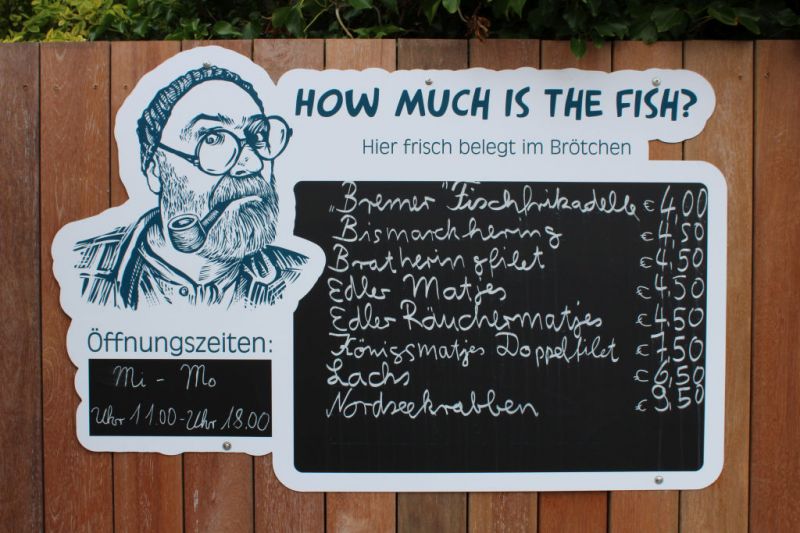 HOW MUCH IS THE FISH?
Hier frisch belegt im Brötchen
„Bremer" Fischfrikadelle € 4,00
Bismarckhering € 4,50
Bratheringfilet € 4,50
Edler Matjes € 4,50
Edler Räuchermatjes € 4,50
Königsmatjes Doppelfilet € 7,50
Lachs € 6,50
Nordseekrabben € 9,50
Öffnungszeiten:
Mi - Mo
Uhr 11.00-Uhr 18.00